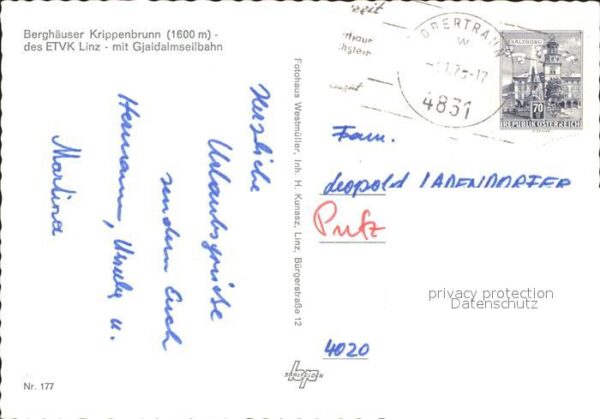 Berghäuser Krippenbrunn (1600 m) -
des ETVK Linz - mit Gjaidalmseilbahn
Herzliche
Urlaubsgrüße
senden Euch
Hermann, Ursula u.
Martina
Fotohaus Westmüller, Inh. H. Kunasz, Linz, Bürgerstraße 12
OBERTRAUN
4831
SALZBURG
70
REPUBLIK ÖSTERREICH
Fam.
Leopold LADENDORFER
Putz
privacy protection
Datenschutz
4020
SAALFELDEN
Nr. 177